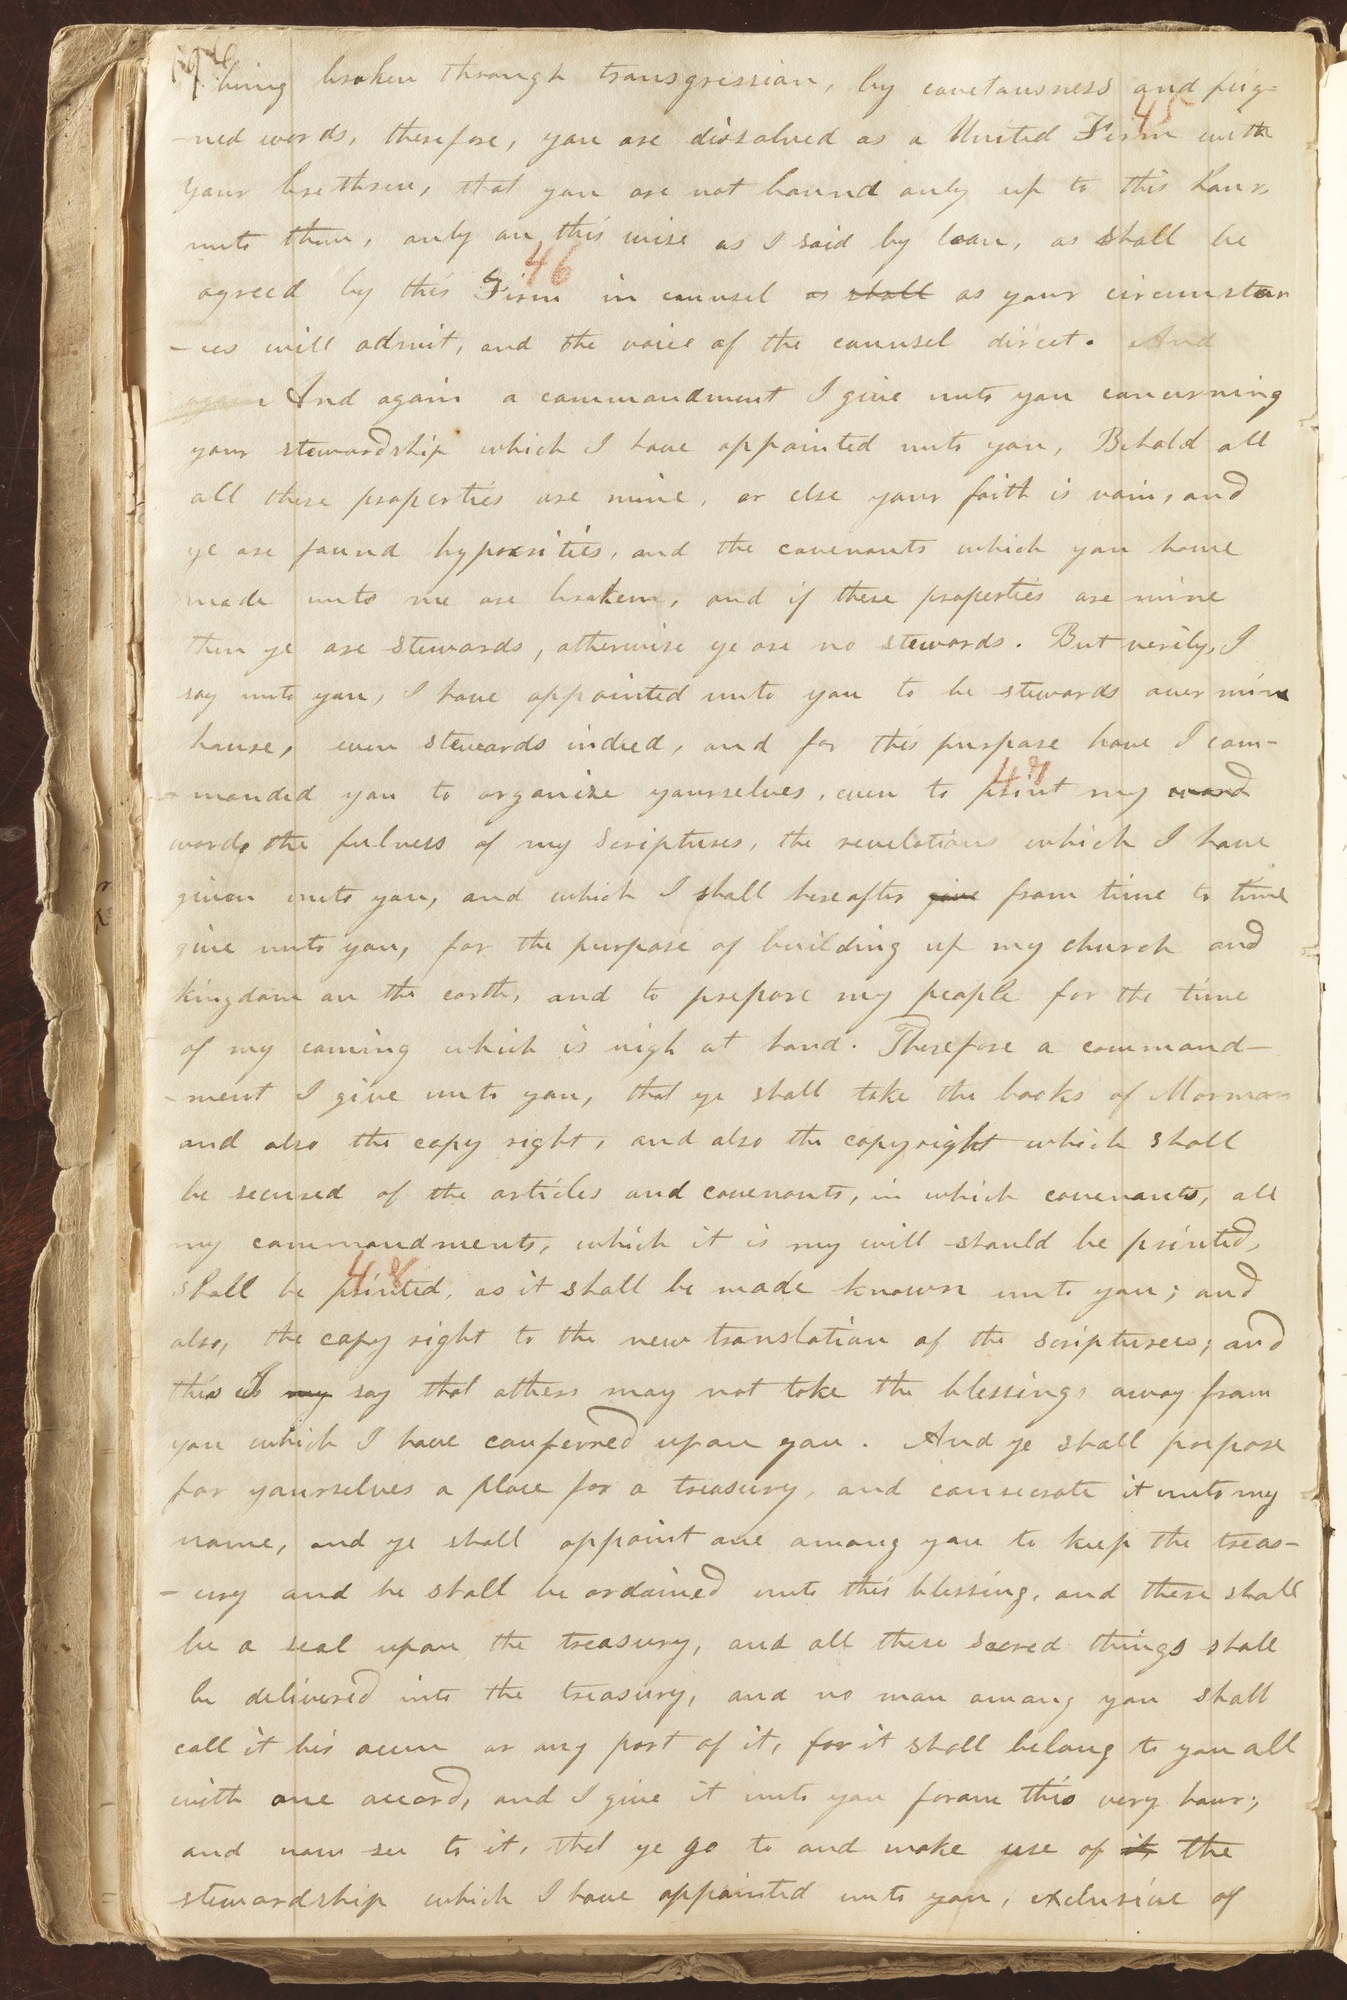 being broken through transgression, by covetousness and feig=
-ned words, therefore, you are dissolved as a United Firm with
45
your brethren, that you are not bound only up to this hour,
unto them, only on this wise as I said by loan, as shall be
46
agreed by this Firm in counsel as shall as your circumstan
-ces will admit, and the voice of the counsel direct. And
again And again a commandment I give unto you concerning
your stewardship which I have appointed unto you, Behold all
all these properties are mine, or else your faith is vain, and
ye are found hypocrities, and the covenants which you have
made unto me are broken, and if these properties are mine
then ye are stewards, otherwise ye are no stewards. But verily, I
say unto you, I have appointed unto you to be stewards over mine
house, even stewards indeed, and for this purpose have I com-
47
-manded you to organize yourselves, even to print my word
words the fulness of my scriptures, the revelations which I have
given unto you, and which I shall hereafter give from time to time
give unto you, for the purpose of building up my church and
kingdom on the earth, and to prepare my people for the time
of my coming which is nigh at hand. Therefore a command-
-ment I give unto you, that ye shall take the books of Mormon
and also the copy right, and also the copyright which shall
be secured of the articles and covenants, in which covenants, all
my commandments, which it is my will should be printed,
48
shall be printed, as it shall be made known unto you; and
also, the copy right to the new translation of the scriptures; and
this I my say that others may not take the blessings away from
you which I have conferred upon you. And ye shall prepare
for yourselves a place for a treasury, and consecrate it unto my
name, and ye shall appoint one among you to keep the treas-
-ury and he shall be ordained unto this blessing, and there shall
be a seal upon the treasury, and all these sacred things shall
be delivered into the treasury, and no man among you shall
call it his own or any part of it, for it shall belong to you all
with one accord, and I give it unto you from this very hour;
and now see to it, that ye go to and make use of it the
stewardship which I have appointed unto you, exclusive of